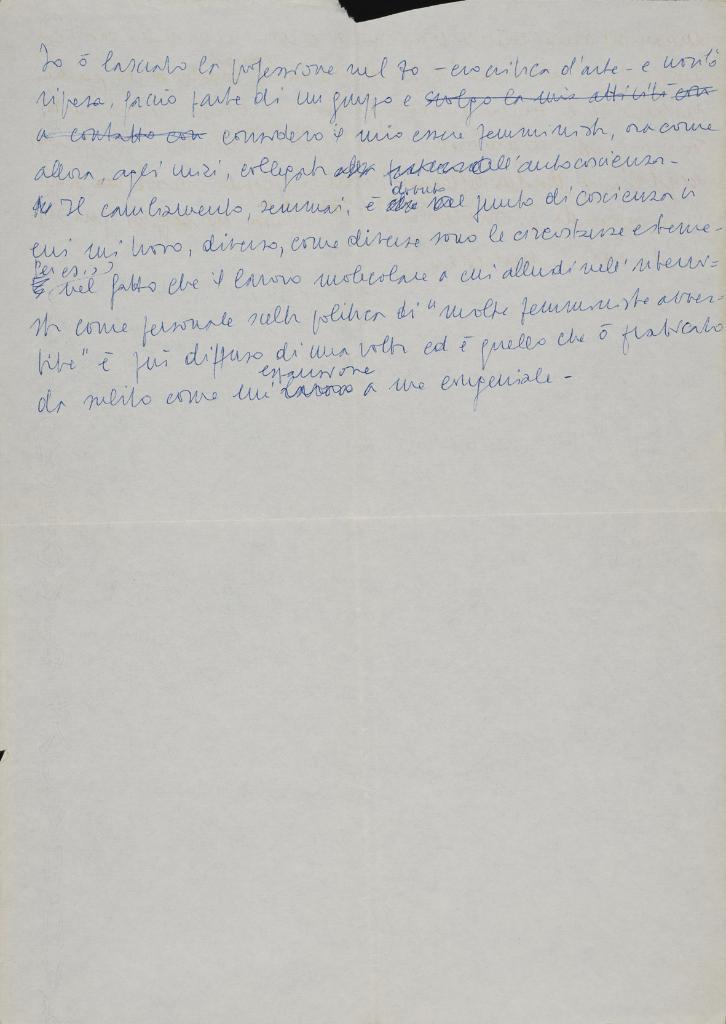 Io ò lasciato la professione nel 70 – ero critica d'arte – e non l'ò
ripresa, faccio parte di un gruppo e svolgo la mia attività con
a contatto con considero il mio essere femminista, ora come
allora, agli inizi, collegata alla pratica dell'autocoscienza –
Il cambiamento, semmai, è dovuto al punto di coscienza in
cui mi trovo, diverso, come diverse sono le circostanze esterne –
Per es. nel fatto che il lavoro molecolare a cui alludi nell'intervi=
sta come personale scelta politica di "molte femministe avver=
tite" è più diffuso di una volta ed è quello che ò praticato
da subito come un'espansione a me congeniale –